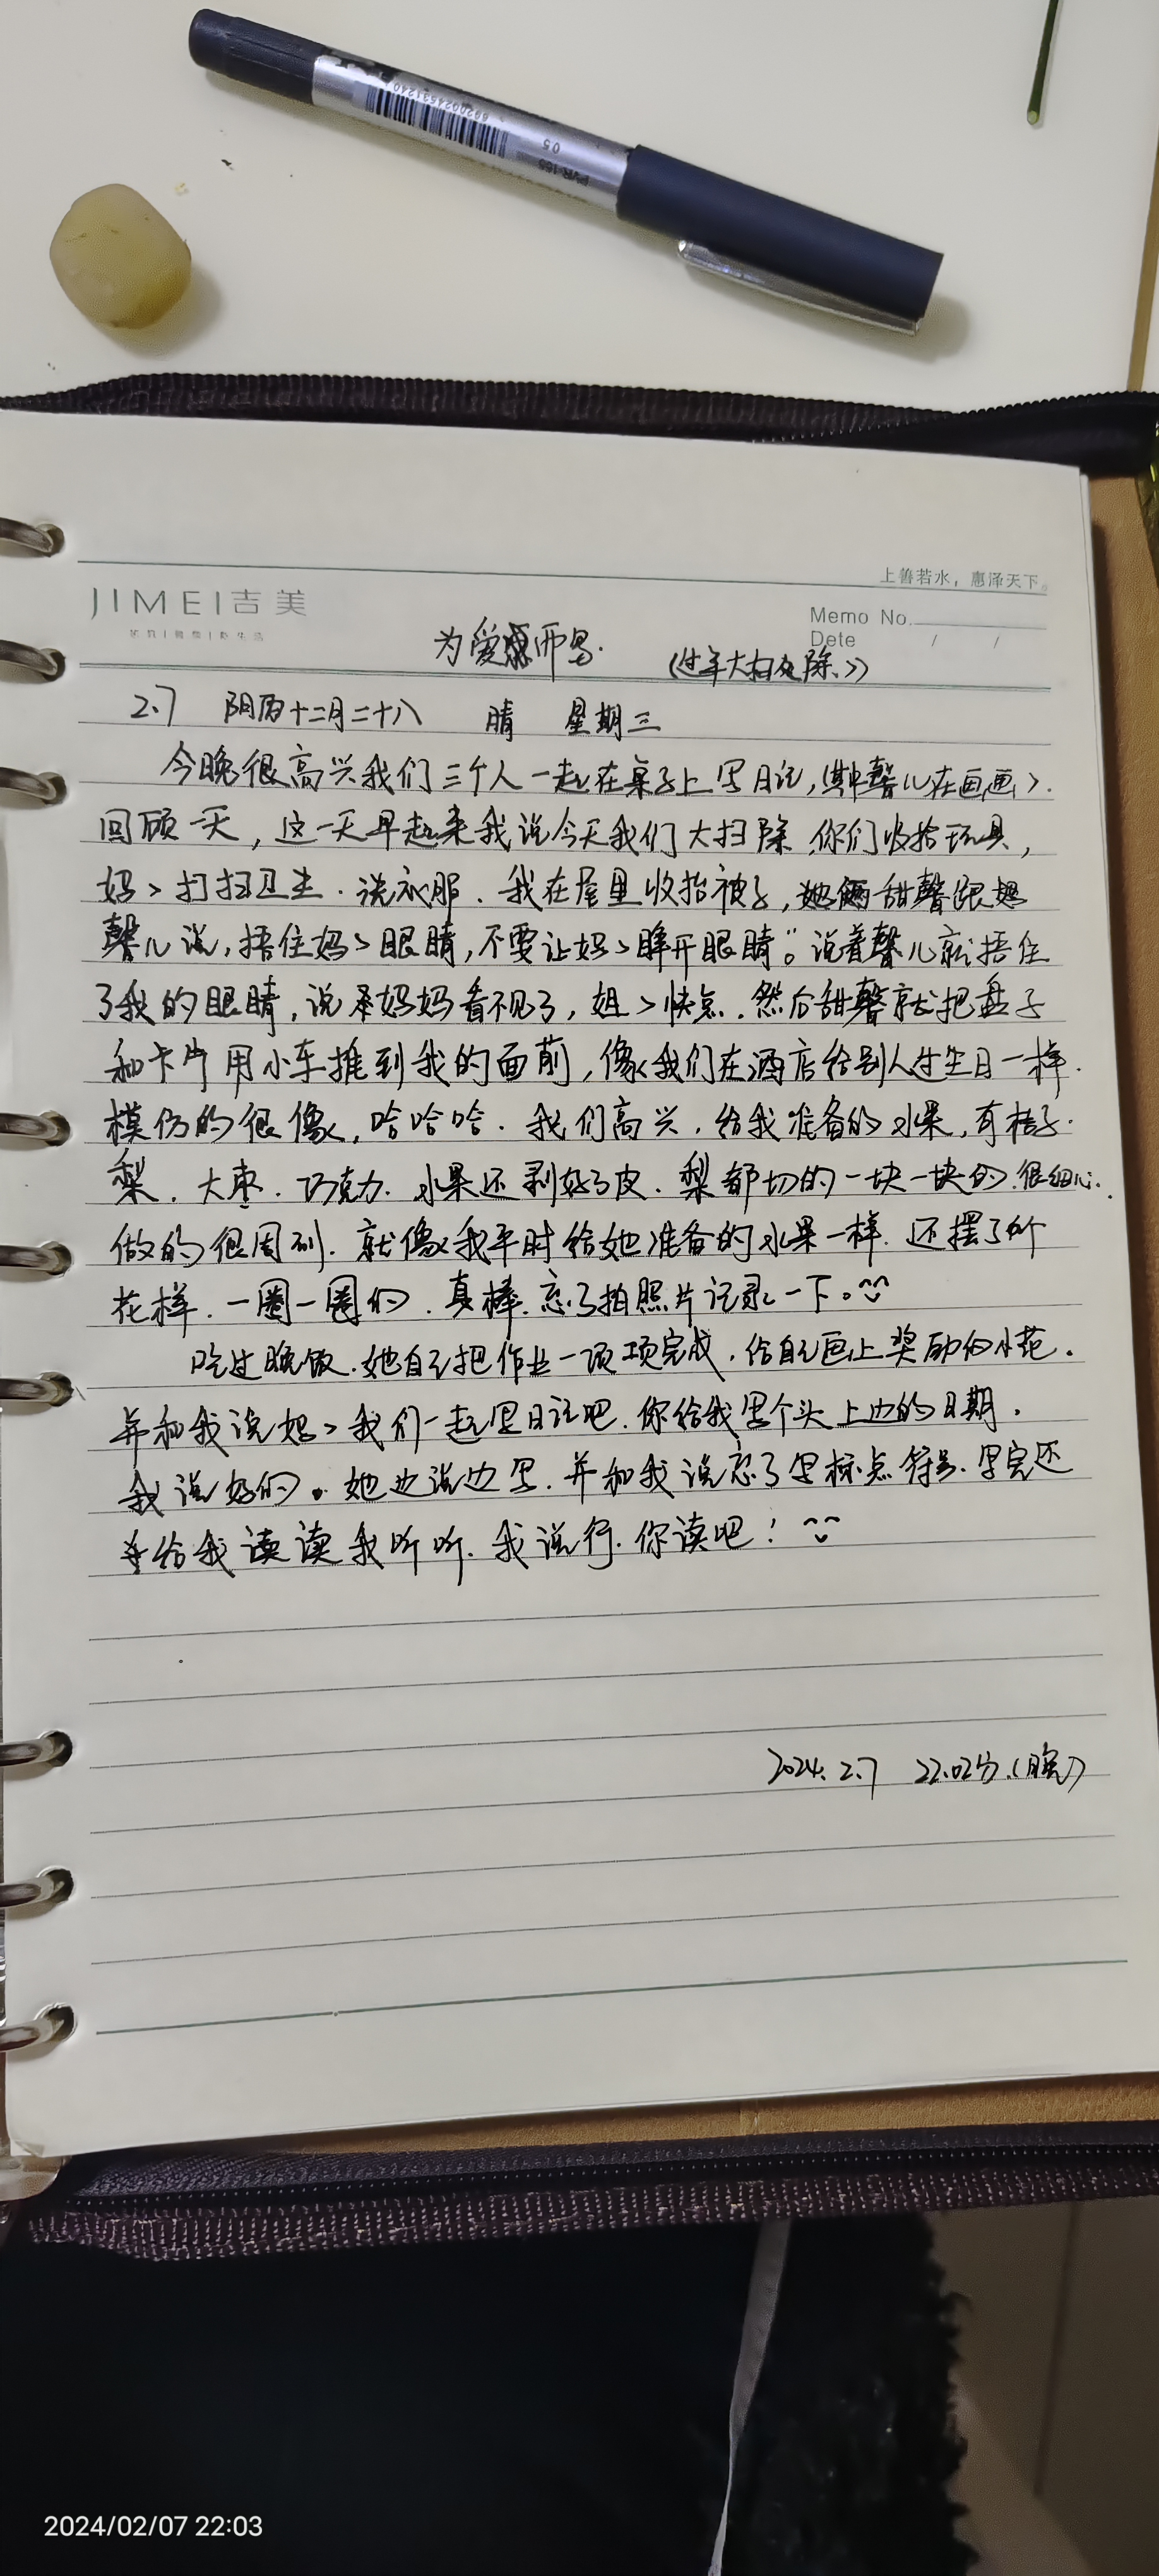 6920024631240
0.5
PVR-155
上善若水，惠泽天下。
JIMEI吉美
Memo No.
Dete / /
为爱而写.
(过年大扫除.)
2.7 阴历十二月二十八 晴 星期三
今晚很高兴我们三个人一起在桌子上写日记,(其中馨儿在画画).
回顾一天，这一天早起来我说今天我们大扫除.你们收拾玩具，
妈>打扫卫生.洗衣服.我在屋里收拾被子,她俩甜馨跟
馨儿说,捂住妈>眼睛,不要让妈>睁开眼睛"。说着馨儿就捂住
了我的眼睛,说妈妈看不见了,姐>快点.然后甜馨就把盘子
和卡片用小车推到我的面前,像我们在酒店给别人过生日一样.
模仿的很像,哈哈哈.我们高兴.给我准备的水果,有桔子.
梨.大枣.巧克力.水果还剥好了皮.梨都切的一块一块的.很细心.
做的很周到.就像我平时给她准备的水果一样.还摆了个
花样.一圈一圈的.真棒.忘了拍照片记录一下。^^
吃过晚饭.她自己把作业一项项完成.给自己画上奖励的小花.
并和我说妈>我们一起写日记吧.你给我写个头上边的日期.
我说好的。她边说边写.并和我说忘了写标点符号.写完还
给我读读我听听.我说行.你读吧！^^
2024.2.7 22.02分.(晚)
2024/02/07 22:03